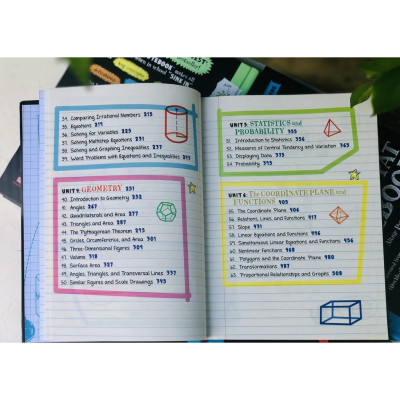 NOTEBOOK
"SINK IN"
34. Comparing Irrational Numbers 215
35. Equations 219
36. Solving for Variables 225
37. Solving Multistep Equations 231
38. Solving and Graphing Inequalities 237
39. Word Problems with Equations and Inequalities 243
UNIT 4: GEOMETRY 251
40. Introduction to Geometry 252
41. Angles 267
42. Quadrilaterals and Area 277
43. Triangles and Area 287
44. The Pythagorean Theorem 295
45. Circles, Circumference, and Area 301
46. Three-Dimensional Figures 309
47. Volume 318
48. Surface Area 327
49. Angles, Triangles, and Transversal Lines 337
50. Similar Figures and Scale Drawings 345
UNIT 5: STATISTICS and
PROBABILITY 355
51. Introduction to Statistics 356
52. Measures of Central Tendency and Variation 365
53. Displaying Data 375
54. Probability 395
UNIT 6: The COORDINATE PLANE and
FUNCTIONS 405
55. The Coordinate Plane 406
56. Relations, Lines, and Functions 417
57. Slope 431
58. Linear Equations and Functions 446
59. Simultaneous Linear Equations and Functions 456
60. Nonlinear Functions 468
61. Polygons and the Coordinate Plane 480
62. Transformations 487
63. Proportional Relationships and Graphs 508